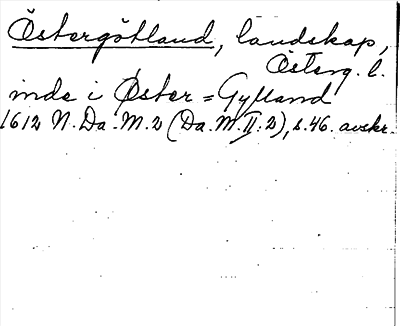 Östergötland, landskap,
Österg. l.
inde i Øster = Gylland
1612 N. Da. M. 2 (Da. M. II: 2), s. 46. avskr.